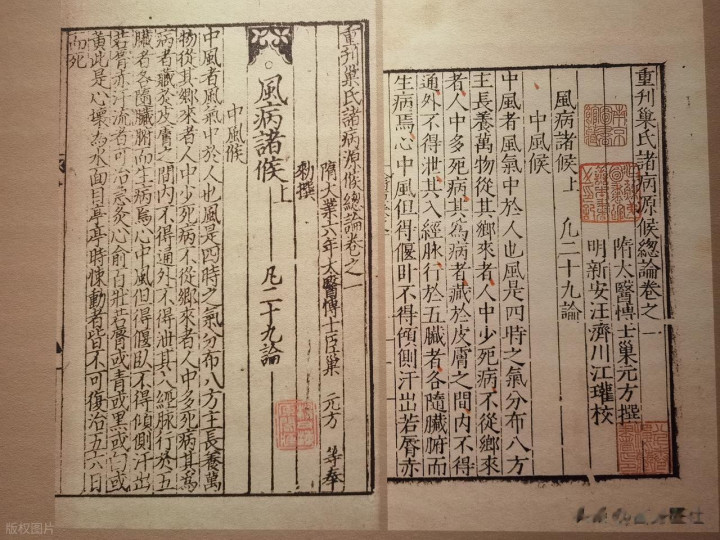 重刊巢氏諸病源候總論卷之一
隋太醫博士巢元方撰
明新安汪濟川江瓘校
風病諸候上 凡二十九論
中風候
中風者風氣中於人也風是四時之氣分布八方
主長養萬物從其鄉來者人中少死病不從鄉來
者人中多死病其為病者藏於皮膚之間內不得
通外不得泄其入經脉行於五臟者各隨臟腑而
生病焉心中風但得偃卧不得傾側汗出若唇赤
重刊巢氏諸病源候總論卷之一
隋大業六年太醫博士臣巢 元方 等奉
勅撰
風病諸候上 凡二十九論
中風候
中風者風氣中於人也風是四時之氣分布八方主長養萬
物從其鄉來者人中少死病不從鄉來者人中多死病其為
病者藏於皮膚之間內不得通外不得泄其入經脉行於五
臟者各隨臟腑而生病焉心中風但得偃臥不得傾側汗出
若唇赤汗流者可治急灸心俞百壯若唇或青或黑或白或
黃此是心壞為水面目亭亭時悚動者皆不可復治五六日
而死
版权图片